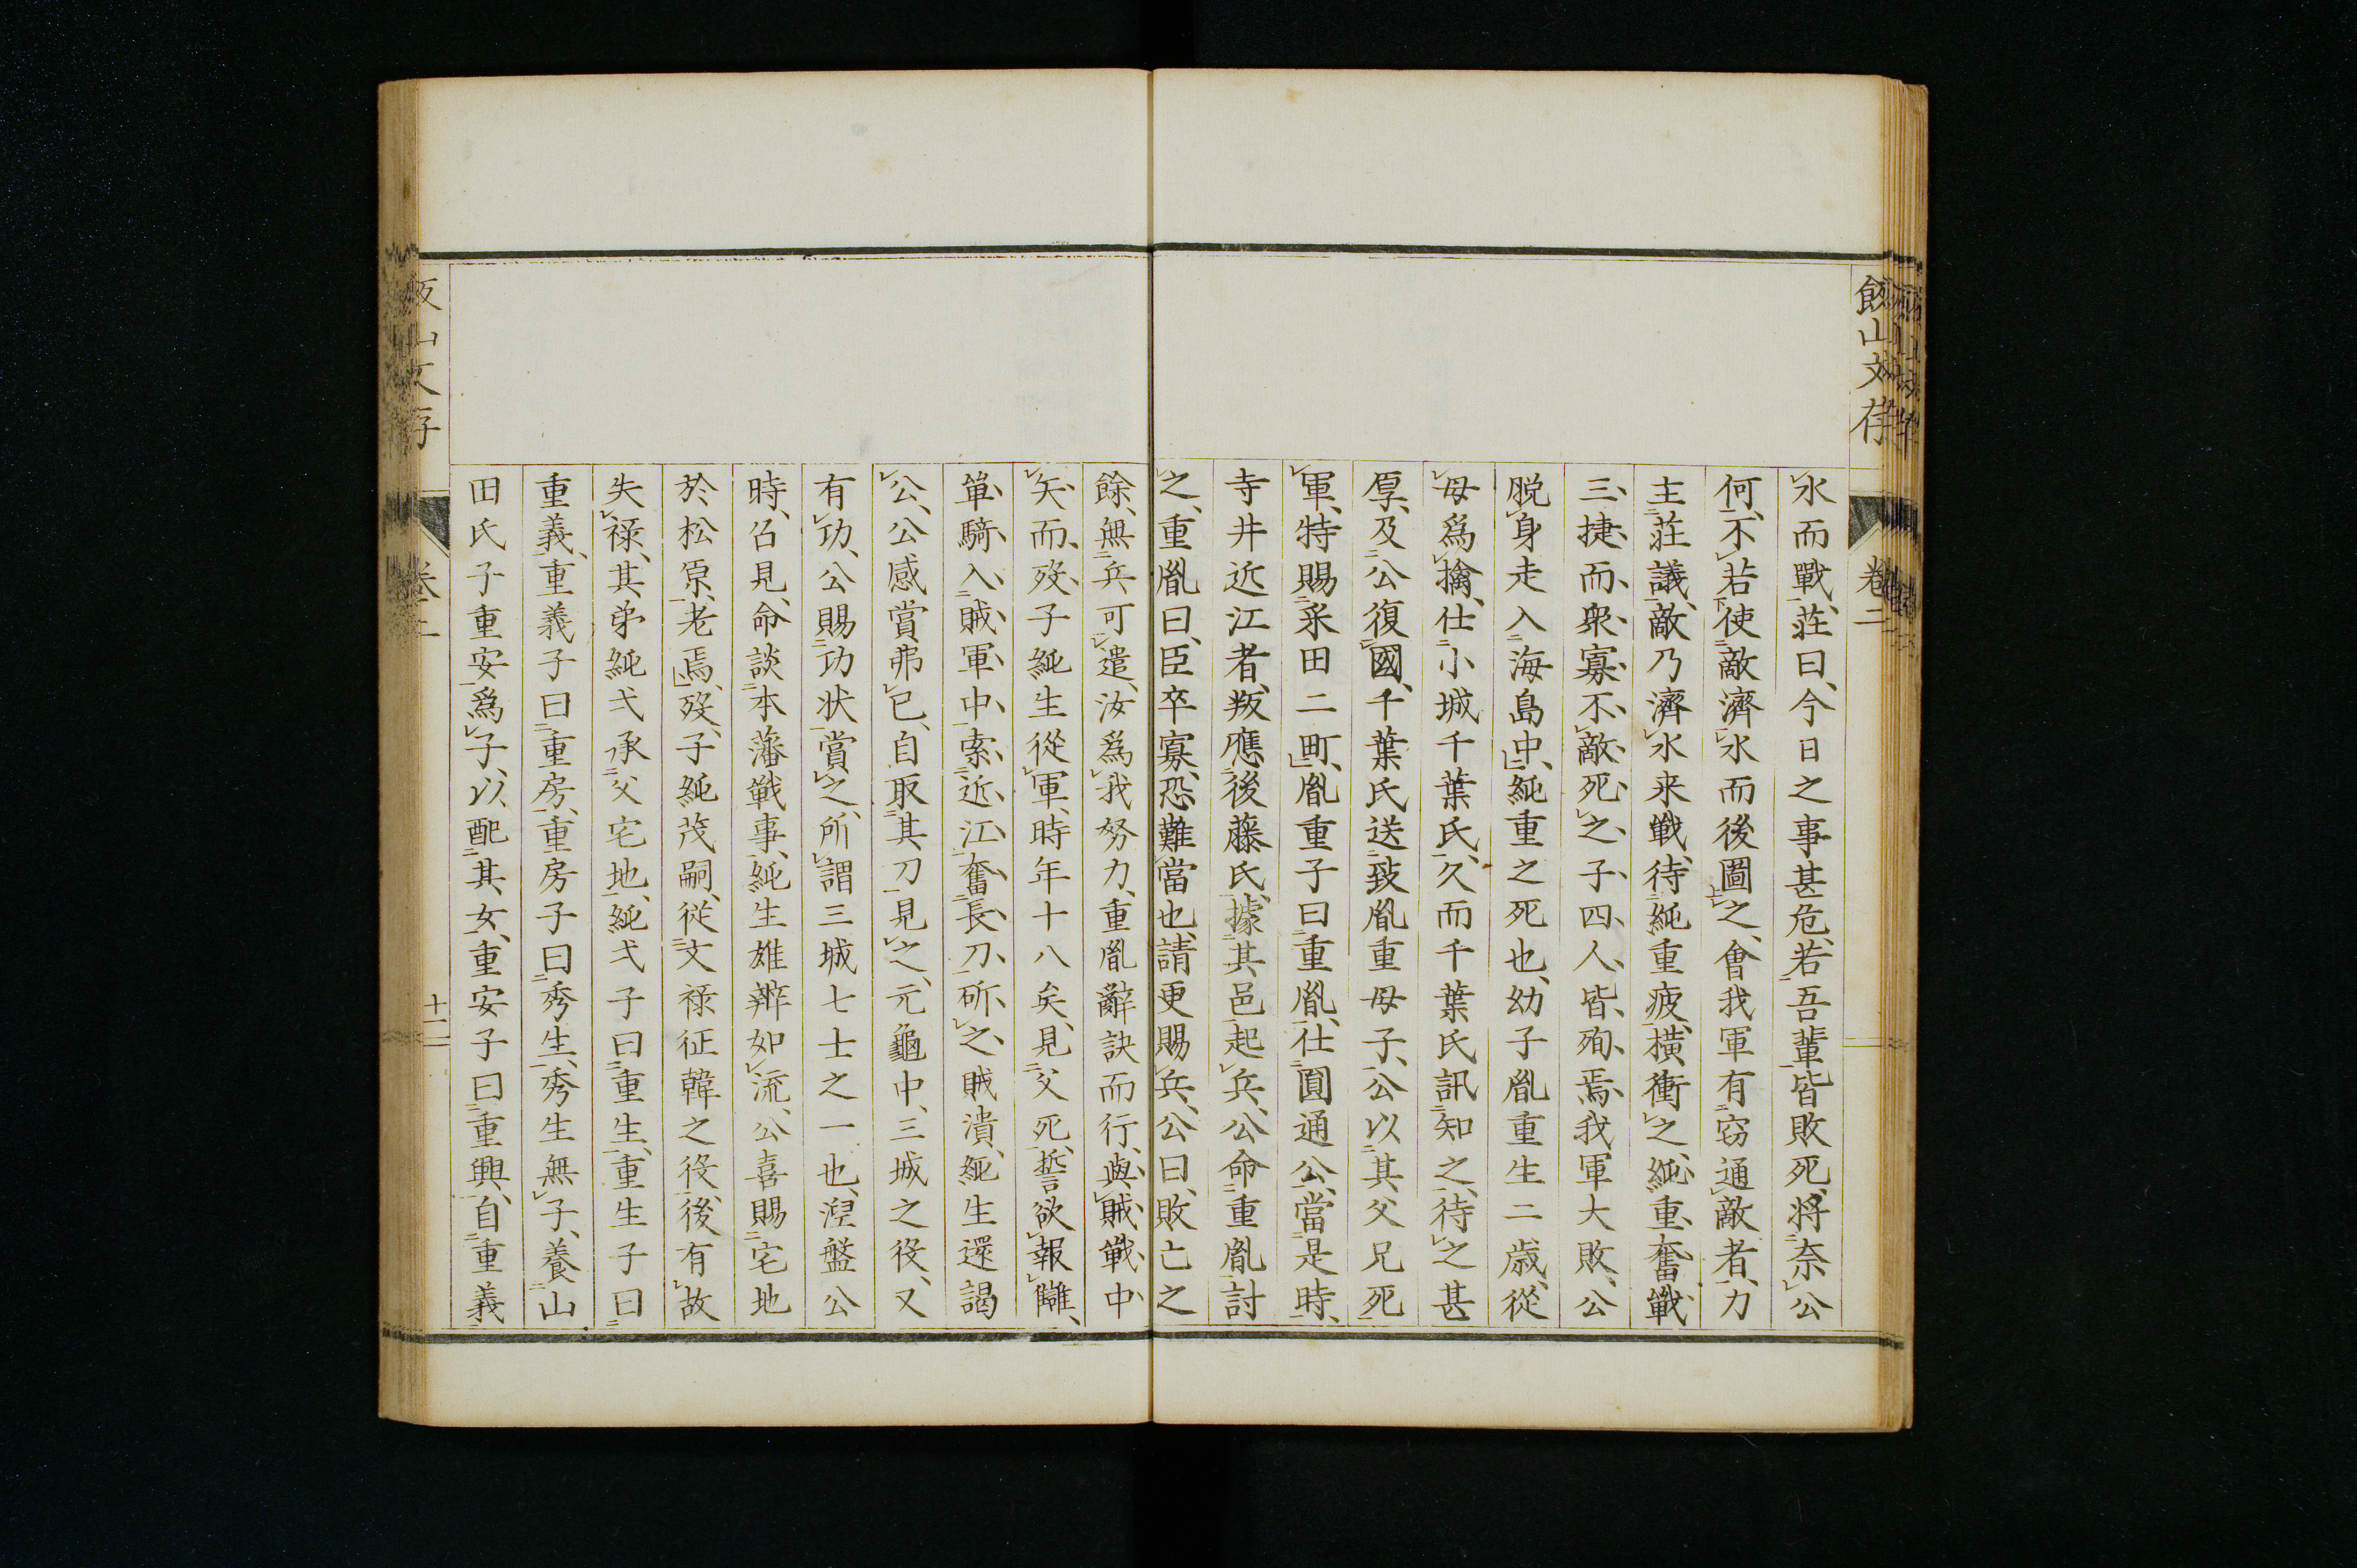 飯山文存
卷二
水而戰、莊曰、今日之事甚危、若吾輩皆敗死、將奈公
何、不若使敵濟水而後圖之、會我軍有窃通敵者、力
主莊議、敵乃濟水来戰、待純重疲、橫衝之、純重奮戰
三捷而衆寡不敵死之、子四人皆殉焉、我軍大敗、公
脱身走入海島中、純重之死也、幼子胤重生二歳、從
母爲擒、仕小城千葉氏、久而千葉氏訊知之、待之甚
厚、及公復國、千葉氏送致胤重母子、公以其父兄死
軍、特賜采田二町、胤重子曰重胤、仕圓通公、當是時、
寺井近江者、叛應後藤氏、據其邑起兵、公命重胤討
之、重胤曰、臣卒寡、恐難當也、請更賜兵、公曰、敗亡之
餘、無兵可遣、汝爲我努力、重胤辭訣而行、與賊戰中
矢而歿、子純生從軍、時年十八矣、見父死、誓欲報讎、
単騎入賊軍中、索近江奮長刀斫之、賊潰、純生還謁
公、公感賞弗已、自取其刀見之、元龜中、三城之役、又
有功、公賜功状賞之、所謂三城七士之一也、涅盤公
時、召見、命談本藩戰事、純生雄辨如流、公喜賜宅地
於松原老焉、歿、子純茂嗣、從文禄征韓之役、後有故
失禄、其弟純弌承父宅地、純弌子曰重生、重生子曰
重義、重義子曰重房、重房子曰秀生、秀生無子、養山
田氏子重安爲子、以配其女、重安子曰重興、自重義
飯山文存
卷二
十二